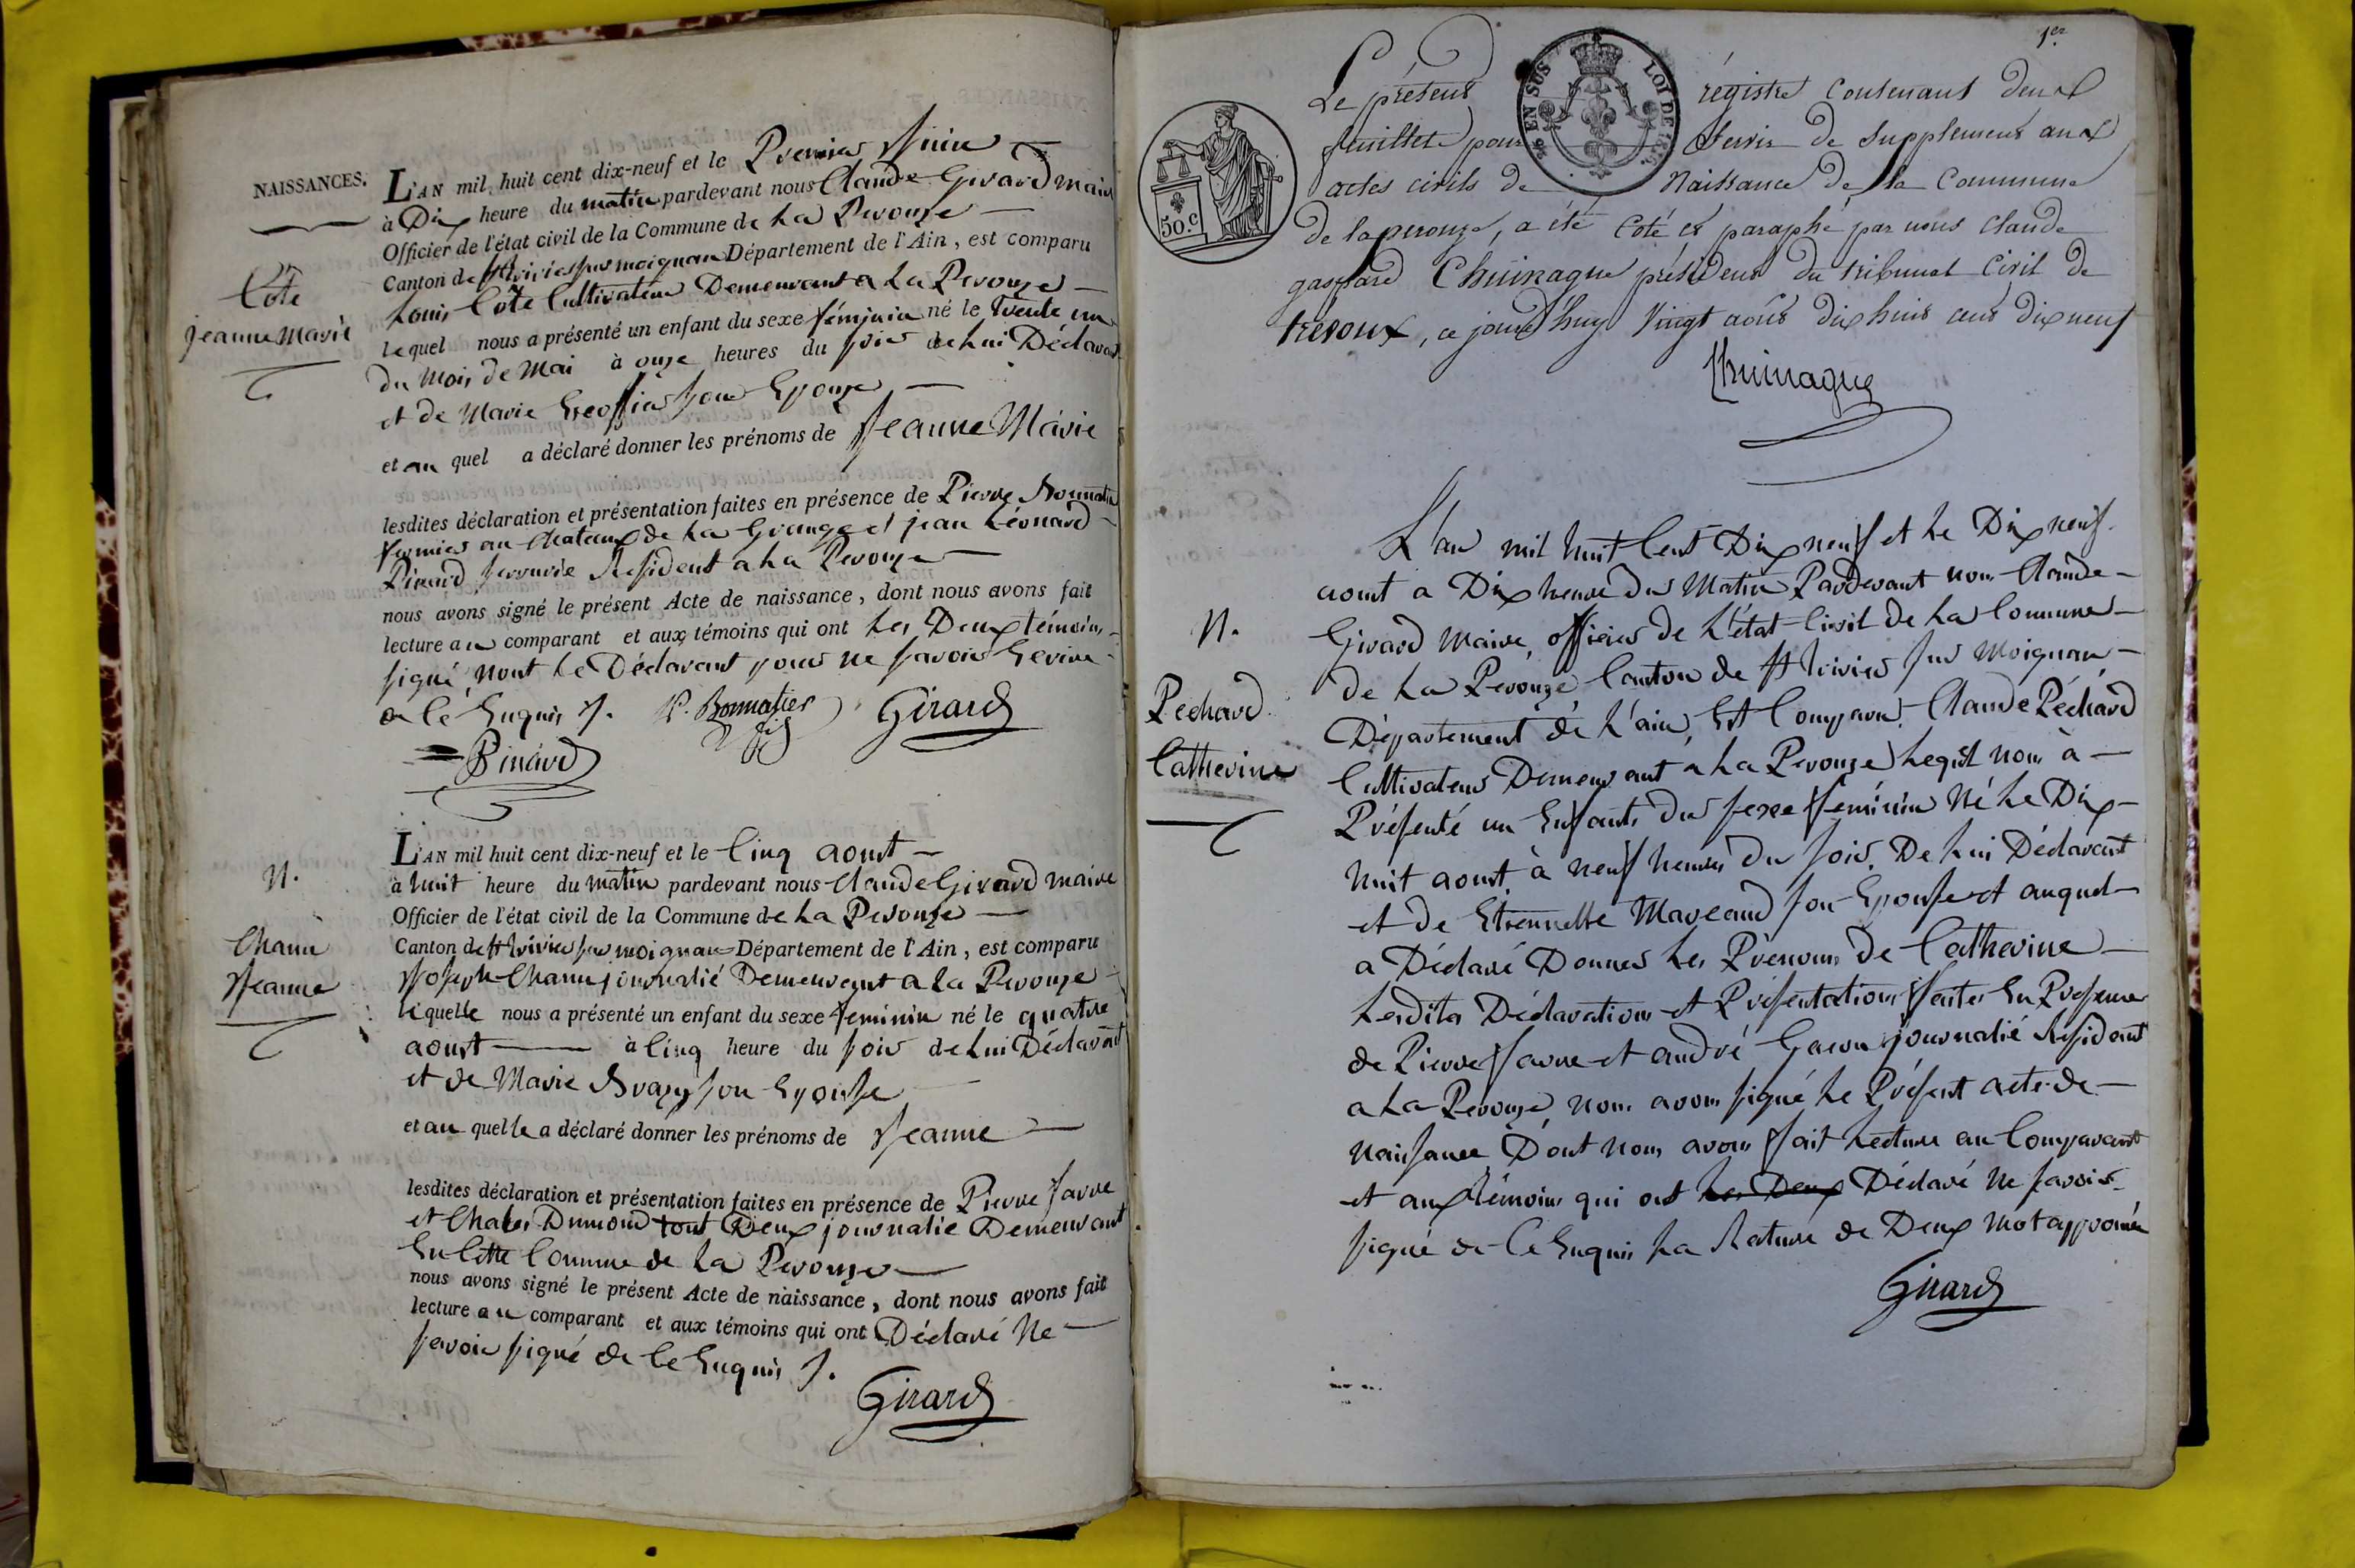 NAISSANCES.
Côte
jeanne Marie
L'AN mil huit cent dix-neuf et le Premier Juin
à Dix heure du matin pardevant nous Claude Girard maire
Officier de l'état civil de la Commune de La Perouze
Canton de St trivier sur moignan Département de l'Ain, est comparu
Louis Côte Cultivateur Demeurant a La Perouze
lequel nous a présenté un enfant du sexe féminin né le trente un
du Mois de Mai à onze heures du soir de lui Déclarant
et de Marie son Epouze
et au quel a déclaré donner les prénoms de Jeanne Marie
lesdites déclaration et présentation faites en présence de Pierre Bonnatier
fermier au Chateaux de La Grange et jean Léonard
Pinard Résident a La Perouze
nous avons signé le présent Acte de naissance, dont nous avons fait
lecture au comparant et aux témoins qui ont Les Deux témoins
signé, nont Le Déclarant pour ne savoir Ecrire
de Ce Enquis ./.
P. Bonnatier fils
Girard
Pinard
N.
Chanu
Jeanne
L'AN mil huit cent dix-neuf et le Cinq aoust
à huit heure du matin pardevant nous Claude Girard maire
Officier de l'état civil de la Commune de La Perouze
Canton de St trivier sur moignan Département de l'Ain, est comparu
Joseph Chanu journalié Demeurant a La Perouze
lequelle nous a présenté un enfant du sexe feminin né le quatre
aoust à Cinq heure du soir de lui Déclarant
et de Marie son Epouse
et au quelle a déclaré donner les prénoms de Jeanne
lesdites déclaration et présentation faites en présence de Pierre favre
et Chales Dumond tout Deux journalié Demeurant
En Cette Commune de La Perouze
nous avons signé le présent Acte de naissance, dont nous avons fait
lecture au comparant et aux témoins qui ont Déclaré Ne
savoir signé de Ce Enquis ./.
Girard
1er
Le présent régistre contenant deux
feuillets pour servir de supplement aux
actes civils de Naissance de la Commune
de laperouze, a été coté et paraphé par nous claude
gaspard Chuinague président du tribunal civil de
trevoux, ce jourd'huy Vingt août dix huit cent dix neuf
Chuinague
EN SUS
LOI DE 1816.
50. C
N.
Pechard
Catherine
L'an mil huit Cent Dix neuf et Le Dix neuf
aoust a Dix heure du Matin Pardevant nous Claude
Girard Maire, officier de L'état Civil de La Commune
de La Perouze Canton de St trivier sur Moignan
Département de L'ain, Est Comparu Claude Péchard
Cultivateur Demeurant a La Perouze Leqel nous à
Présenté un Enfants du sexe feminin Né Le Dix
huit aoust, à neuf heures du soir, De Lui Déclarant
et de Etiennette Mareaud son Epouse et auquel
a Déclaré Donner Les Prénoms De Catherine
Lesdites Déclarations et Présentations faites En Présence
de Pierre favre et andré Gacon journalié Résidant
a La Perouze, nous avons signé Le Présent acte de
naissance Dont nous avons fait Lecture au Comparant
et aux témoins qui ont Les Deux Déclaré Ne savoir
signé de Ce Enquis La Rature de Deux Mot approuvée
Girard